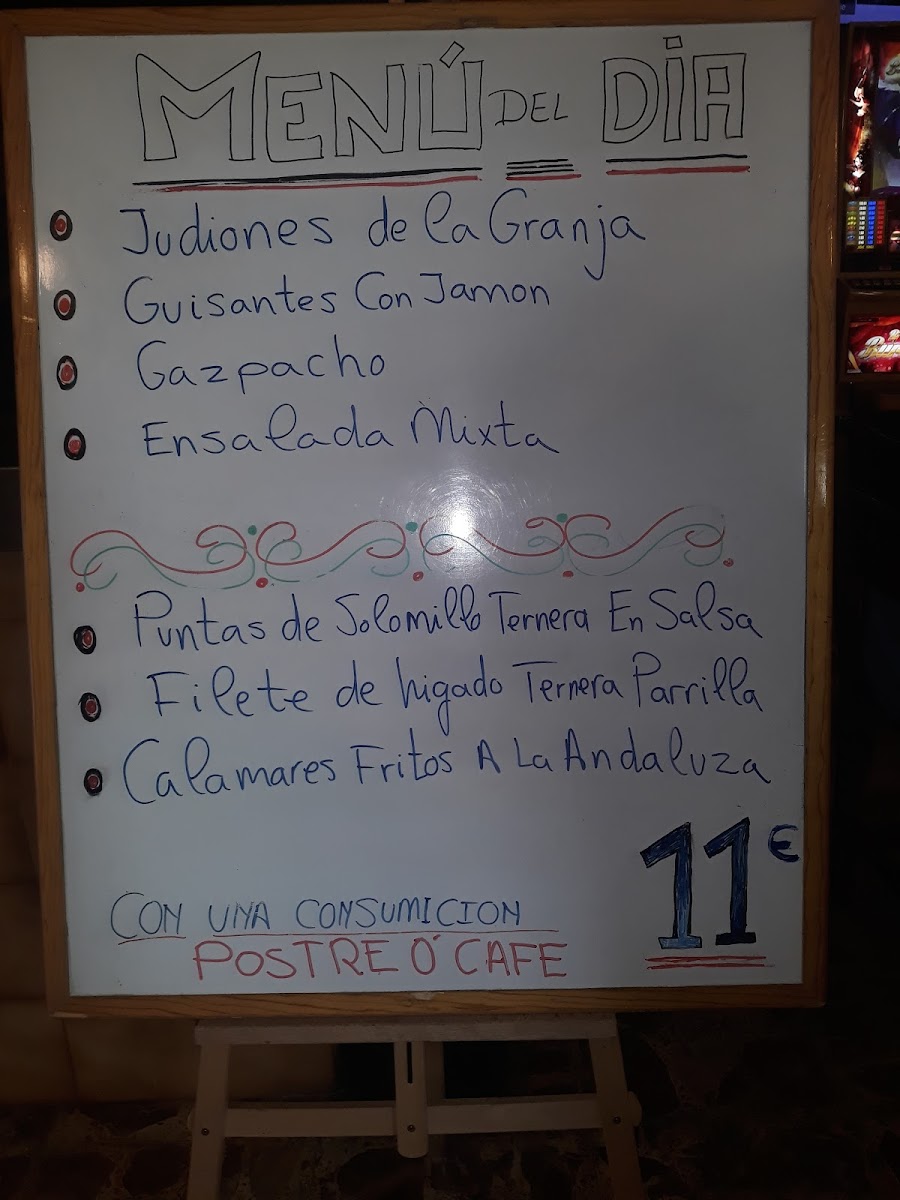 MENÚ DEL DIA
Judiones de la Granja
Guisantes Con Jamon
Gazpacho
Ensalada Mixta
Puntas de Solomillo Ternera En Salsa
Filete de higado Ternera Parrilla
Calamares Fritos A La Andaluza
11€
CON UNA CONSUMICION
POSTRE Ó CAFE